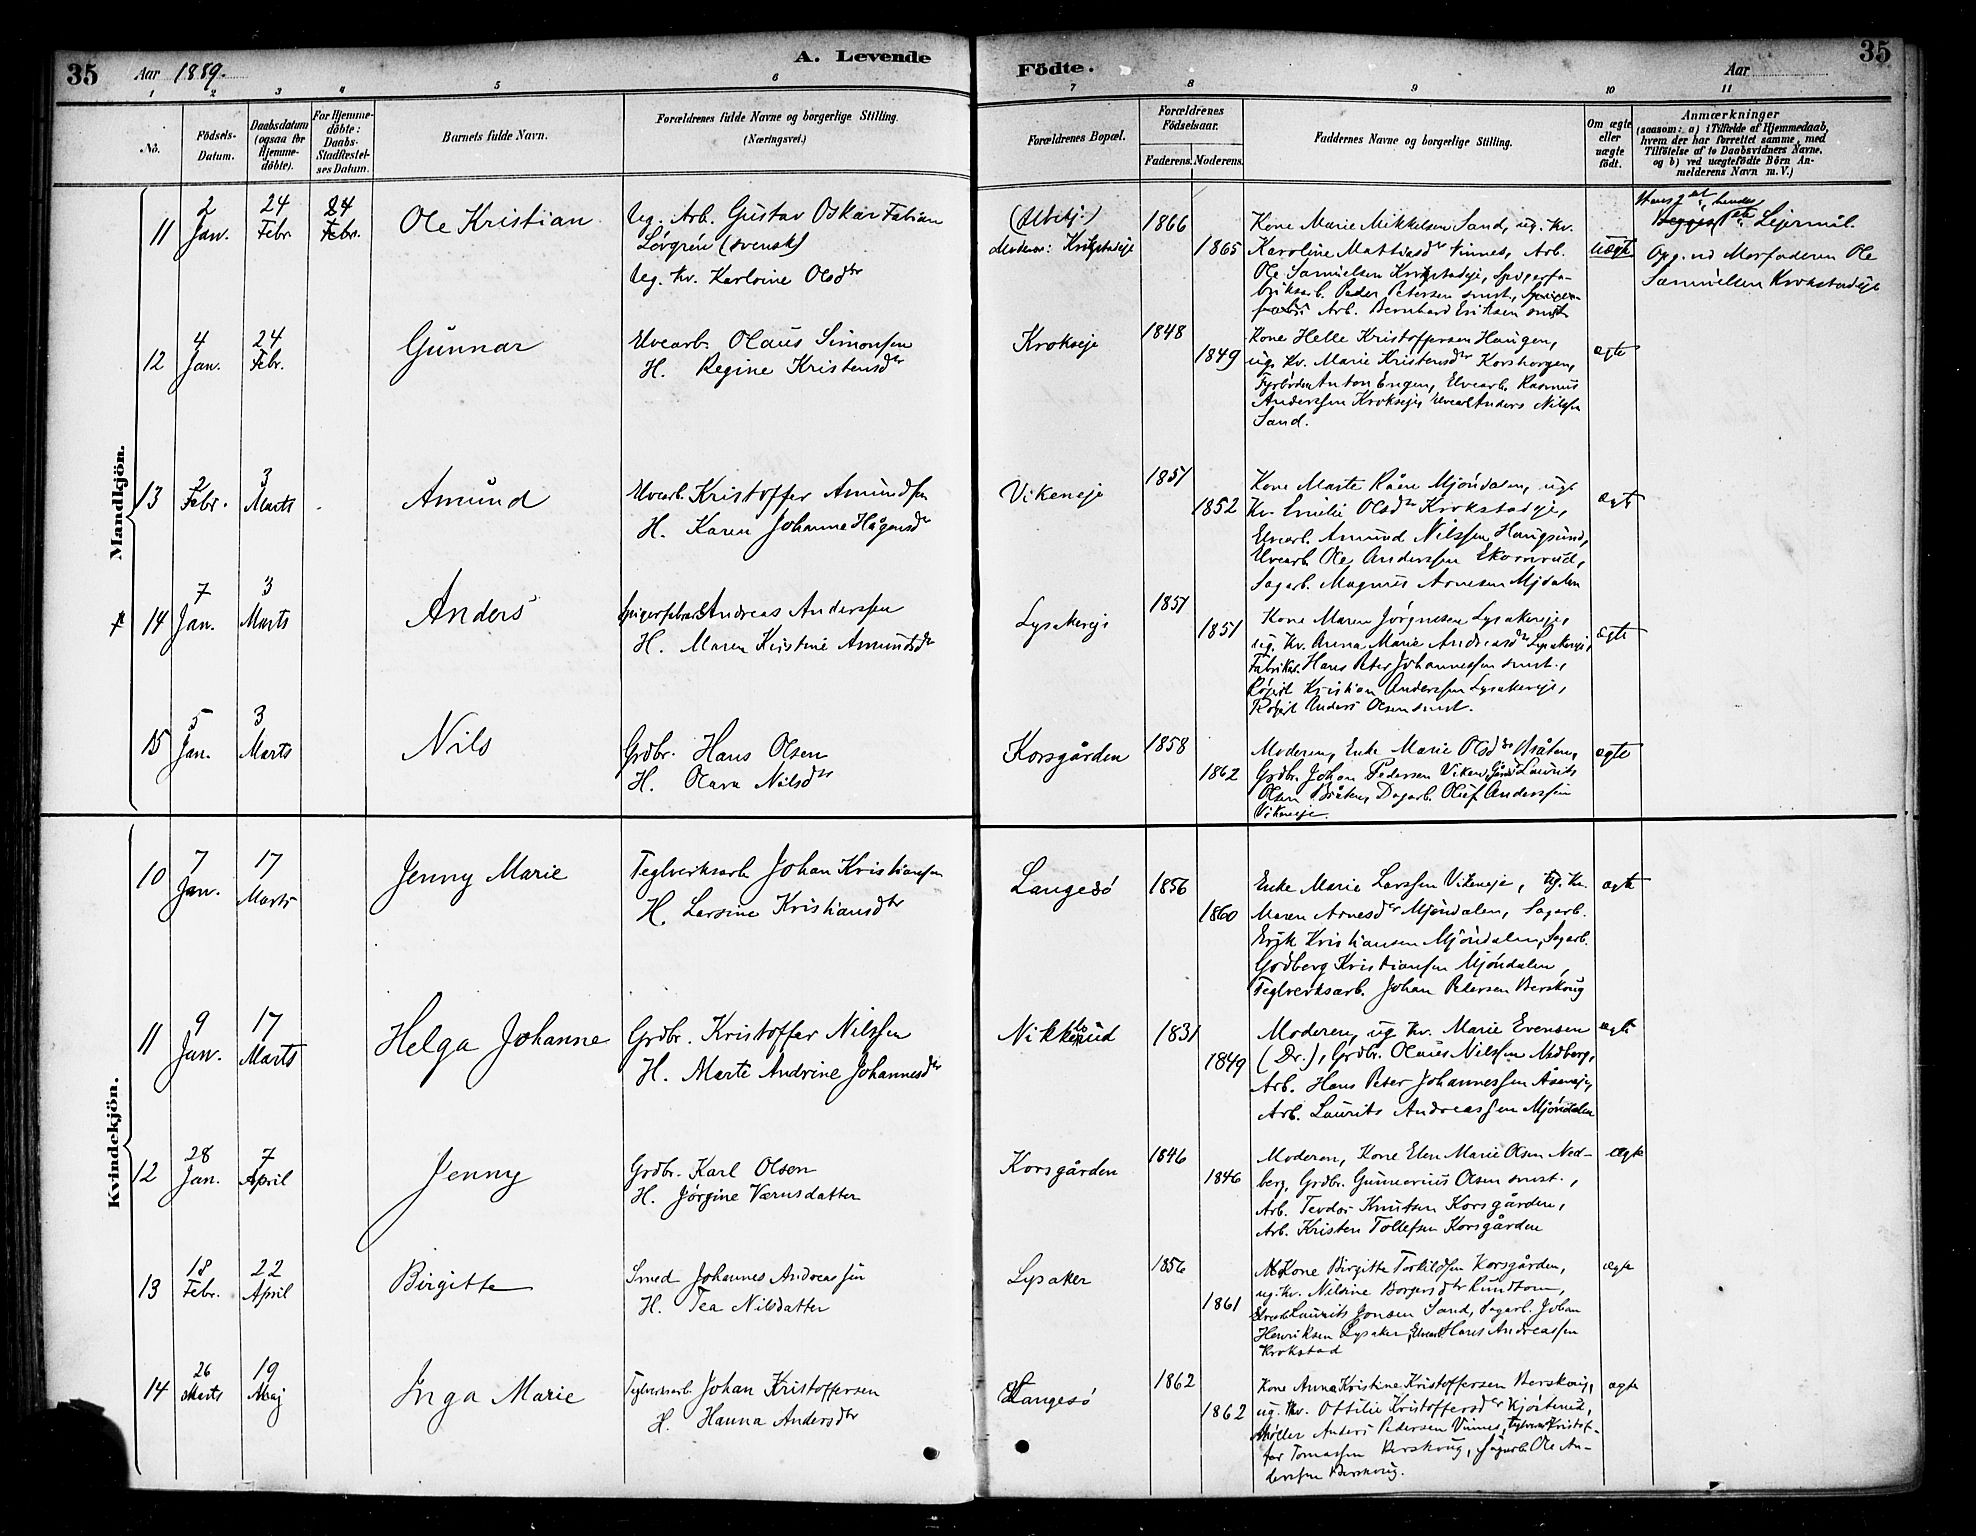 35 Aar 1889. A. Levende Födte. Aar 35
1 2 3 4 5 6 7 8 9 10 11
No. Födsels-Datum. Daabsdatum (ogsaa for Hjemme-döbte). For Hjemme-döbte: Daabs-Stadfæstel-ses Datum. Barnets fulde Navn. Forældrenes fulde Navne og borgerlige Stilling. (Næringsvei.) Forældrenes Bopæl. Forældrenes Födselsaar. Faderens. Moderens. Faddernes Navne og borgerlige Stilling. Om ægte eller uægte födt. Anmærkninger (saasom: a) i Tilfælde af Hjemmedaab, hvem der har forrettet samme, med Tilföielse af to Daabsvidners Navne, og b) ved uægtefödte Börn An-melderens Navn m. V.)
Mandkjön.
11 2 Jan. 24 Febr. 24 Febr. Ole Kristian
Ug. Arb. Gustav Oskar Fabian
Lövgren (svensk)
Ug. Kv. Karloine Olsdtr
Moderen: Krokstadeje
1866 1865
Kone Marie Mikkelsen Sand, ug. Kv.
Karoline Mattisdtr Vinnes, Arb.
Ole Samuelsen Krokstadeje, Spigerfa-
briksarb. Peder Petersen smst.,
Arb. Bernhard Eriksen smst.
uægte
Lejermål.
Opg. ved Morfaderen Ole
Samuelsen Krokstadeje
12 4 Jan. 24 Febr. Gunnar
Elvearb. Olaus Simonsen
H. Regine Kristensdtr
Krokseje
1848 1849
Kone Helle Kristoffersen Haugen,
ug. Kv. Marie Kristensdtr Korshorgen,
Fyrböder Anton Engen, Elvearb. Rasmus
Anderssen Krokseje, Elvearb. Anders Nilssen
Sand.
ægte
13 2 Febr. 3 Marts Amund
Elvearb. Kristoffer Amundsen
H. Karen Johanne Hågensdtr
Vikeneje
1851 1852
Kone Marte Råen Mjöndalen, ug.
Kv. Emilie Olsdtr Krokstadeje,
Elvearb. Amund Nilssen Haugsund,
Elvearb. Ole Anderssen Ekornrud,
Sagarb. Magnus Arnesen Mjdalen
ægte
14 7 Jan. 3 Marts Anders
Spigerfabrarb. Andreas Anderssen
H. Maren Kristine Amundsdtr
Lysakereje
1851 1851
Kone Maren Jörgnesen Lysakereje,
ug. Kv. Anna Marie Andreasdtr Lysakereje,
Fabrikar. Hans Peter Johannessen smst.,
Kristian Anderssen Lysakereje,
Anders Olsen smst.
ægte
15 5 Jan. 3 Marts Nils
Grdbr. Hans Olsen
H. Olava Nilsdtr
Korsgården
1858 1862
Moderen, Enke Marie Olsdtr Bråten,
Grdbr. Johan Pedersen Viken, Laurits
Olsen Bråten, Dagarb. Oluf Anderssen
Vikeneje.
ægte
Kvindekjön.
10 7 Jan. 17 Marts Jenny Marie
Teglverksarb. Johan Kristiansen
H. Larsine Kristiansdtr
Langesö
1856 1860
Enke Marie Larssen Vikeneje, ug. Kv.
Maren Arnesdtr Mjöndalen, Sagarb.
Erik Kristiansen Mjöndalen, Sagarb.
Godberg Kristiansen Mjöndalen,
Teglverksarb. Johan Petersen Berskoug
ægte
11 9 Jan. 17 Marts Helga Johanne
Grdbr. Kristoffer Nilssen
H. Marte Andrine Johannesdtr
1831 1849
Moderen, ug. Kv. Marie Evensen
(Dr.), Grdbr. Olaus Nilssen Nedberg,
Arb. Hans Peter Johannessen Åseneje,
Arb. Laurits Andreassen Mjöndalen
ægte
12 28 Jan. 7 April Jenny
Grdbr. Karl Olsen
H. Jörgine Værnsdatter
Korsgården
1846 1846
Moderen, Kone Elen Marie Olsen Ned-
berg, Grdbr. Gunnerius Olsen smst.,
Arb. Teodor Knutsen Korsgården,
Arb. Kristen Tollefsen Korsgården
ægte
13 18 Febr. 22 April Birgitte
Smed Johannes Andreassen
H. Tea Nilsdatter
Lysaker
1856 1861
Kone Birgitte Torkildsen Korsgården,
ug. Kv. Nilsine Borgersdtr Rundtom,
Laurits Jonsen Sand, Sagarb. Johan
Henriksen Lysaker, Elvearb. Hans Andreassen
Krokstad
ægte
14 26 Marts 19 Maj Inga Marie
Teglverksarb. Johan Kristoffersen
H. Hanna Andersdtr
Langesö
1862 1862
Kone Anna Kristine Kristoffersen Berskoug,
ug. Kv. Ottilie Kristoffersdtr Hjöstenes,
Möller Anders Pedersen Vinnes, Teglverksarb. Kristof-
fer Tomassen Berskoug, Sagarb. Ole An-
derssen Berskoug.
ægte